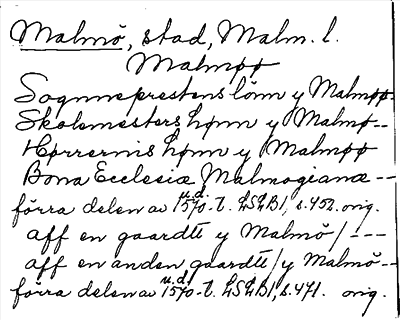 Malmö, stad, Malm. l.
Malmøø
Sognneprestens lönn y Malmøø.
Skolemesters hønn y Malmø--
Hørrernis hønn y Malmøø
Bona Ecclesiæ Malmogianæ ---
förra delen av u.d. 1570-t. LSLB1, s. 452. orig.
aff en gaardtt y Malmö/---
aff en anden gaardtt/y Malmö--
förra delen av u.d. 1570-t. LSLB1, s. 471. orig.